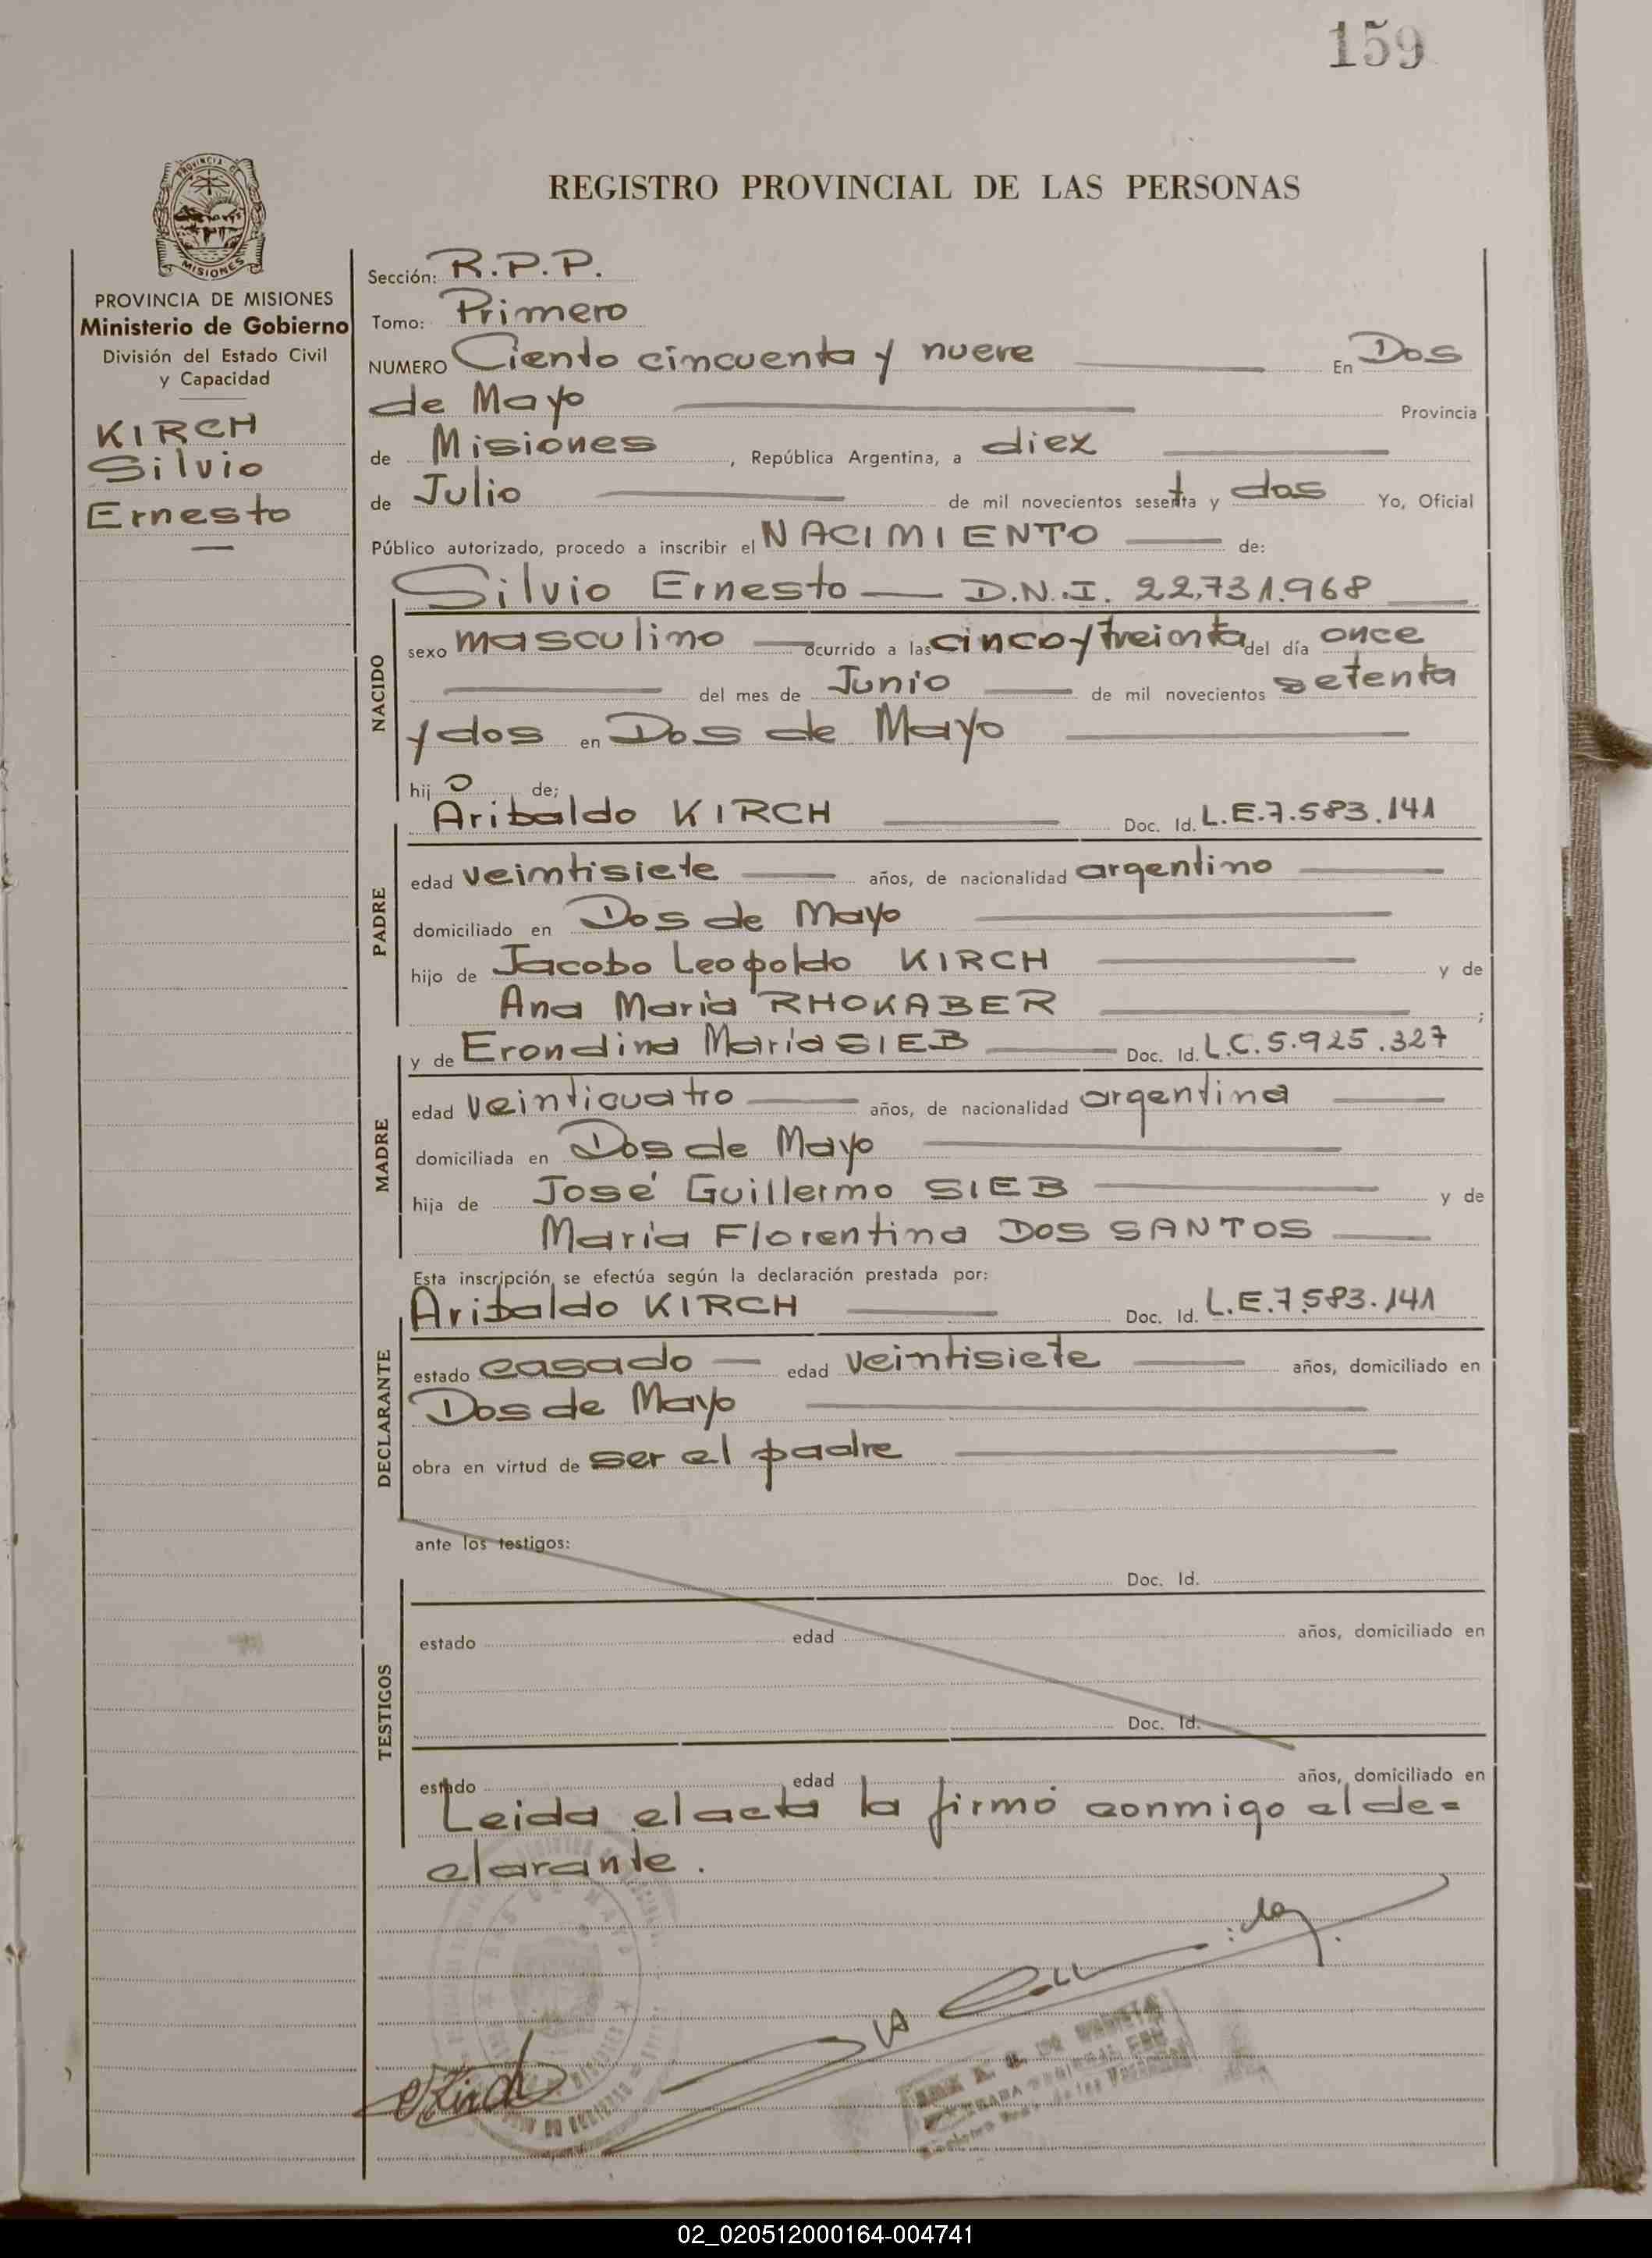 159
REGISTRO PROVINCIAL DE LAS PERSONAS
PROVINCIA DE
MISIONES
PROVINCIA DE MISIONES
Ministerio de Gobierno
División del Estado Civil
y Capacidad
KIRCH
Silvio
Ernesto
Sección: R.P.P.
Tomo: Primero
NUMERO Ciento cincuenta y nueve En Dos
de Mayo Provincia
de Misiones, República Argentina, a diez
de Julio de mil novecientos sesenta y dos Yo, Oficial
Público autorizado, procedo a inscribir el NACIMIENTO de:
Silvio Ernesto — D.N.I. 22.731.968
NACIDO
sexo masculino ocurrido a las cinco y treinta del día once
del mes de Junio de mil novecientos setenta
y dos en Dos de Mayo
hijo de;
Aribaldo KIRCH Doc. Id. L.E.7.583.141
PADRE
edad veintisiete años, de nacionalidad argentino
domiciliado en Dos de Mayo
hijo de Jacobo Leopoldo KIRCH y de
Ana María RHOKABER ;
y de Erondina María SIEB Doc. Id. L.C.5.925.327
MADRE
edad veinticuatro años, de nacionalidad argentina
domiciliada en Dos de Mayo
hija de José Guillermo SIEB y de
María Florentina DOS SANTOS
Esta inscripción se efectúa según la declaración prestada por:
Aribaldo KIRCH Doc. Id. L.E.7.583.141
DECLARANTE
estado casado — edad veintisiete años, domiciliado en
Dos de Mayo
obra en virtud de ser el padre
ante los testigos:
Doc. Id.
TESTIGOS
estado edad años, domiciliado en
Doc. Id.
estado edad años, domiciliado en
Leida el acta la firmó conmigo el de=
clarante.
Kirch
02_020512000164-004741